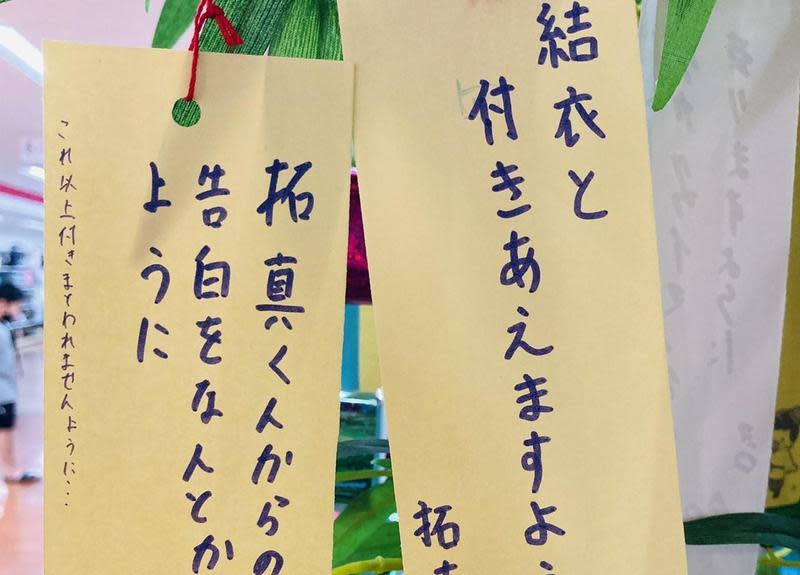 結衣と
付きあえますよう
拓
拓真くんからの
告白をなんとか
ように
これ以上付きまとわれませんように…